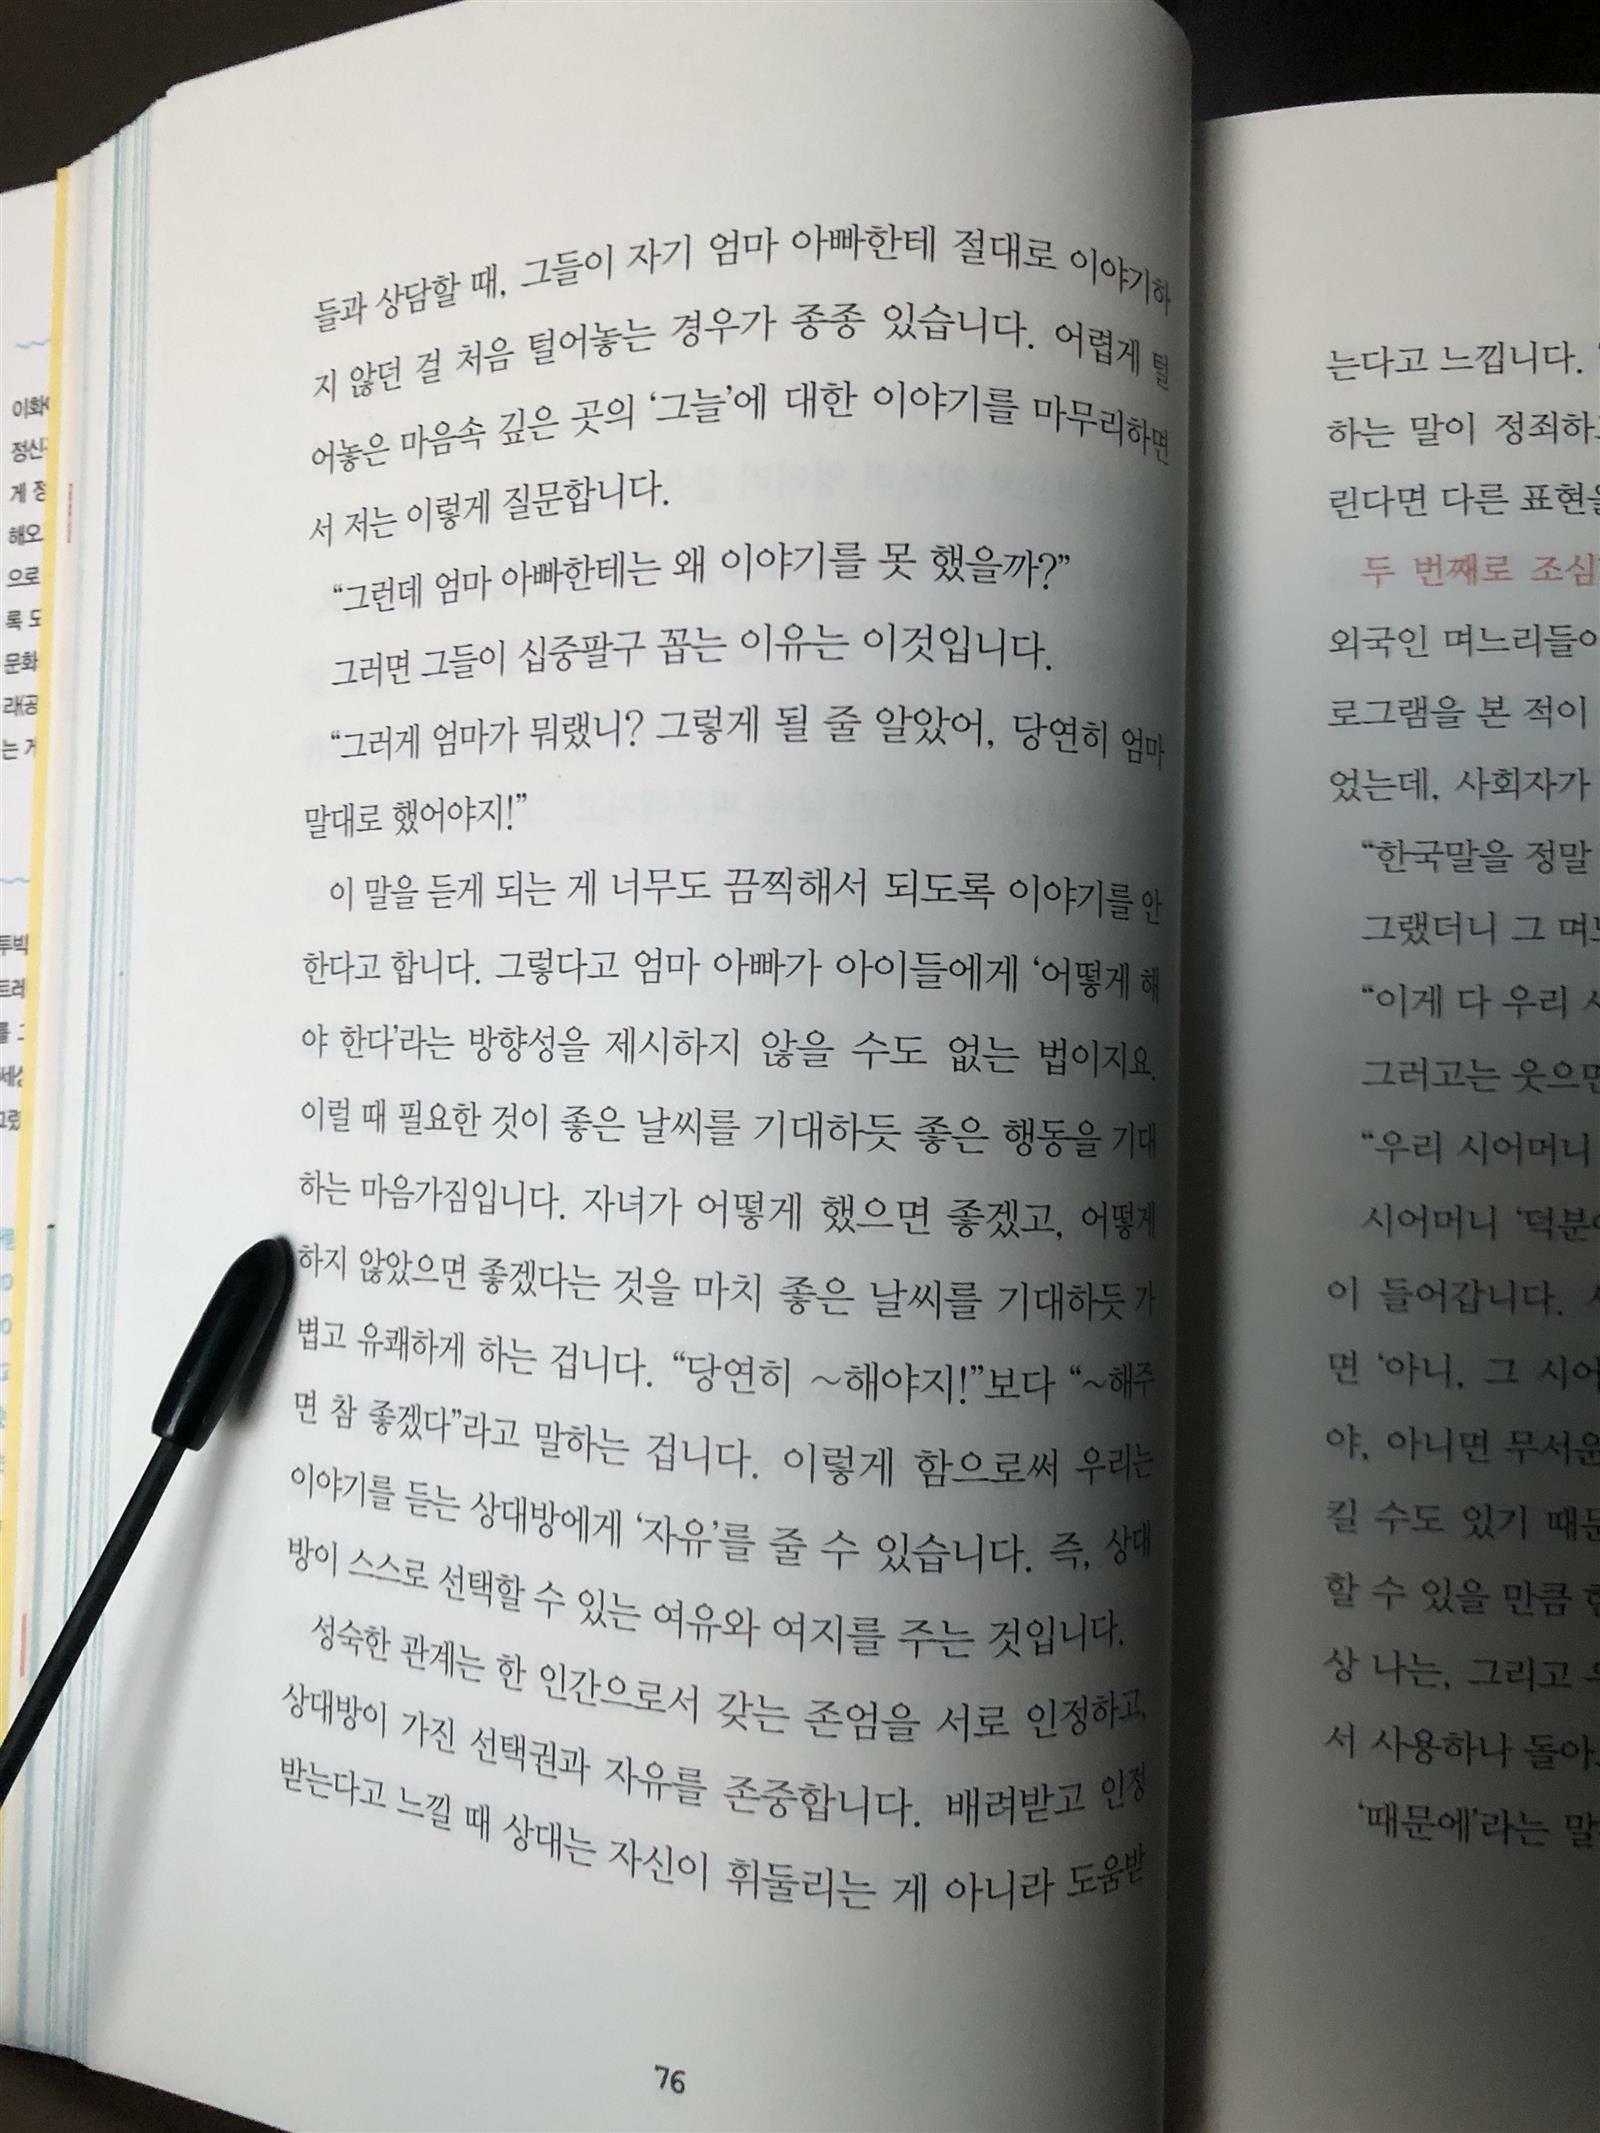 들과 상담할 때, 그들이 자기 엄마 아빠한테 절대로 이야기하
지 않던 걸 처음 털어놓는 경우가 종종 있습니다. 어렵게 털
어놓은 마음속 깊은 곳의 ‘그늘’에 대한 이야기를 마무리하면
서 저는 이렇게 질문합니다.
“그런데 엄마 아빠한테는 왜 이야기를 못 했을까?”
그러면 그들이 십중팔구 꼽는 이유는 이것입니다.
“그러게 엄마가 뭐랬니? 그렇게 될 줄 알았어, 당연히 엄마
말대로 했어야지!”
이 말을 듣게 되는 게 너무도 끔찍해서 되도록 이야기를 안
한다고 합니다. 그렇다고 엄마 아빠가 아이들에게 ‘어떻게 해
야 한다’라는 방향성을 제시하지 않을 수도 없는 법이지요.
이럴 때 필요한 것이 좋은 날씨를 기대하듯 좋은 행동을 기대
하는 마음가짐입니다. 자녀가 어떻게 했으면 좋겠고, 어떻게
하지 않았으면 좋겠다는 것을 마치 좋은 날씨를 기대하듯 가
볍고 유쾌하게 하는 겁니다. “당연히 ~해야지!”보다 “~해주
면 참 좋겠다”라고 말하는 겁니다. 이렇게 함으로써 우리는
이야기를 듣는 상대방에게 ‘자유’를 줄 수 있습니다. 즉, 상대
방이 스스로 선택할 수 있는 여유와 여지를 주는 것입니다.
성숙한 관계는 한 인간으로서 갖는 존엄을 서로 인정하고,
상대방이 가진 선택권과 자유를 존중합니다. 배려받고 인정
받는다고 느낄 때 상대는 자신이 휘둘리는 게 아니라 도움받
76
는다고 느낍니다.
하는 말이 정죄하
린다면 다른 표현을
두 번째로 조심
외국인 며느리들이
로그램을 본 적이
었는데, 사회자가
“한국말을 정말
그랬더니 그 며느
“이게 다 우리
그러고는 웃으면
“우리 시어머니
시어머니 ‘덕분에
이 들어갑니다.
면 ‘아니, 그 시어
야, 아니면 무서운
킬 수도 있기 때문
할 수 있을 만큼
상 나는, 그리고
서 사용하나 돌아
‘때문에’라는 말